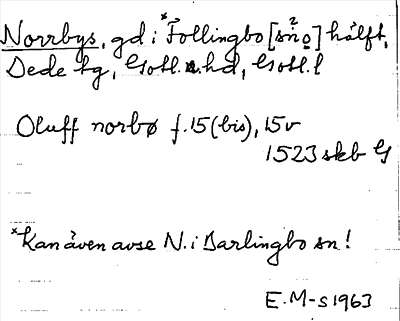 Norrbys, gd i ˣFollingbo [sn o]? hälft,
Dede tg, Gotl. n. hd, Gotl. l
Oluff norbø f. 15 (bis), 15v
1523 skb G
ˣKan även avse N. i Barlingbo sn!
E. M-s 1963